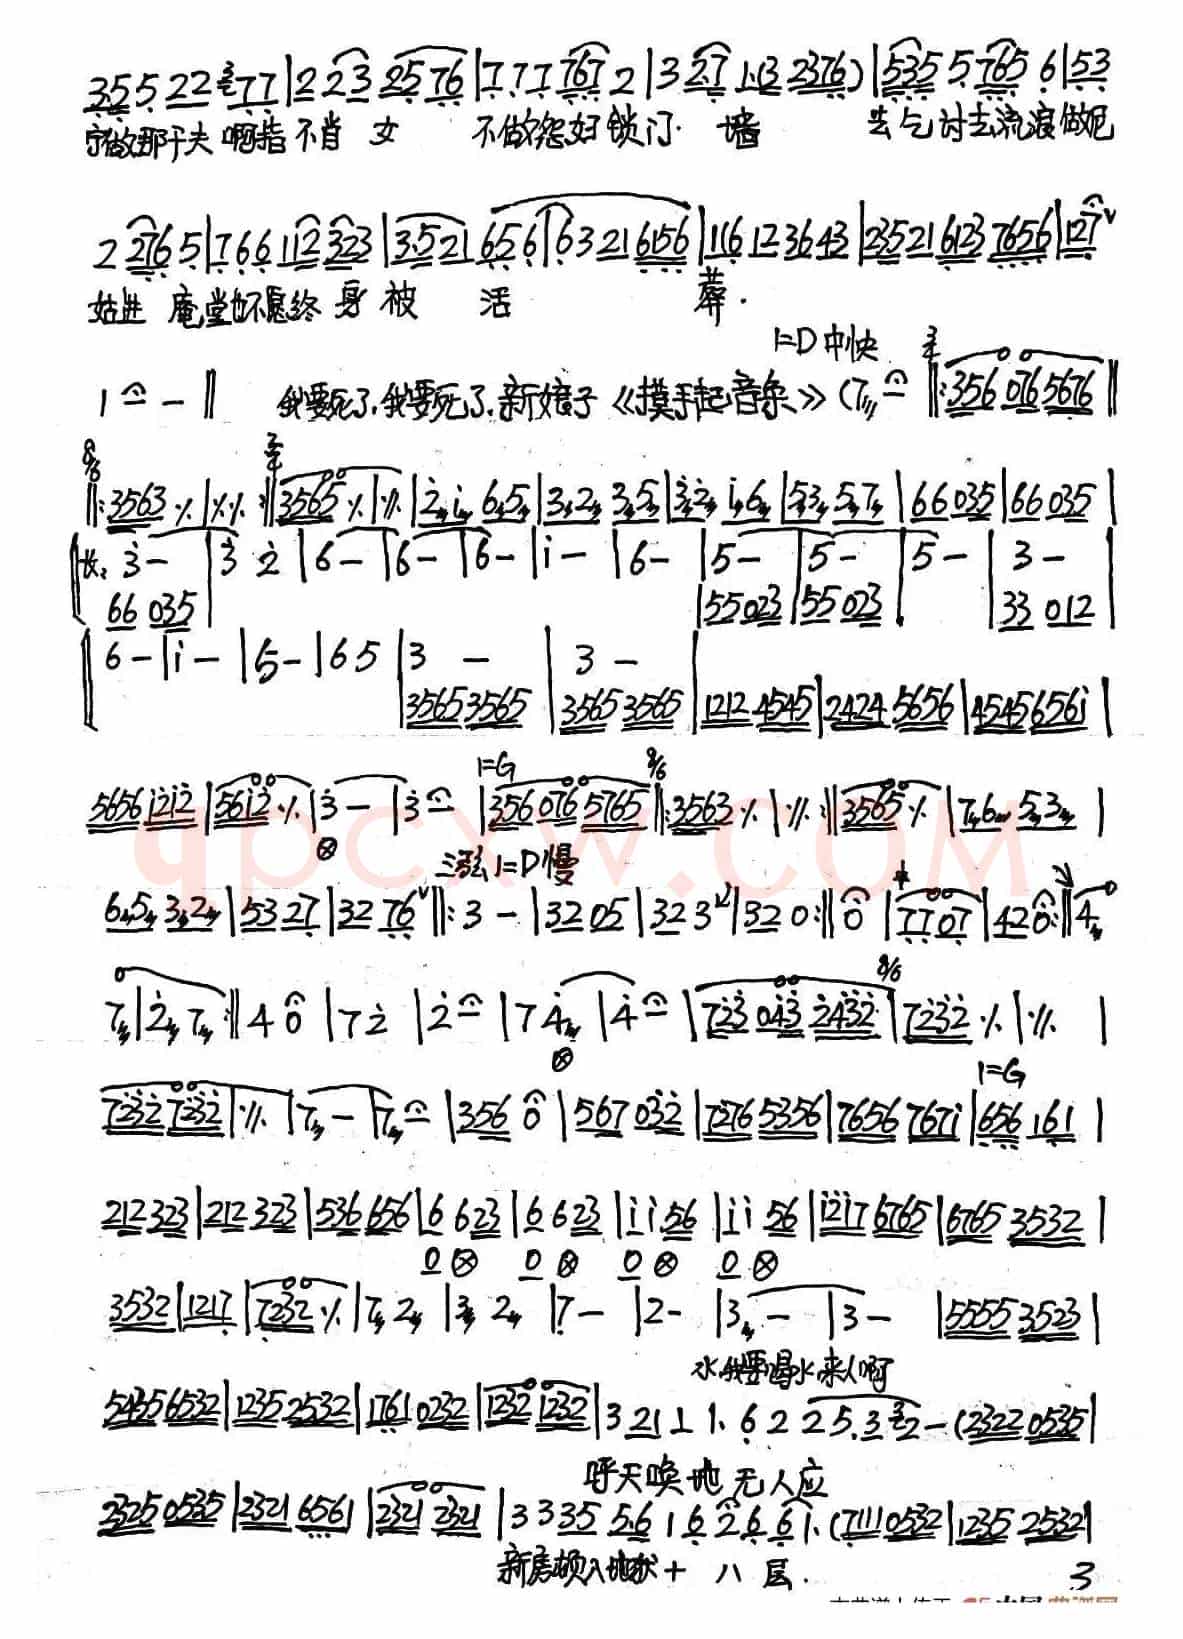 3 5 5 2 2 7 7 | 2 2 3 2 5 7 6 | 7 7 7 7 6 7 2 | 3 2·7 1·(3 2376) | 5 3 5 5·7 6 5 6 | 5 3
宁做那千夫 啊指 不肖 女 不做怨妇锁门·墙 去乞讨去流浪做尼
2 2 7 6 5 | 7 6 6 1 1 2 3 2 3 | 3·5 2 1 6 5 6 | 6 3 2 1 6156 | 1 1 6 1 2 3 6 4 3 | 23521 6123 7656 | 1 2 7 ∨
姑进 庵堂也不愿终 身 被 活 葬·
1=D 中快
1 - ‖ 我要死了,我要死了,新娘子《摸手起音乐》(7 - ‖: 356 076 5676 ‖
8/6
‖: 3563 ٪ | ٪ ٪ :‖ 3565 ٪ | ٪ | 2 i 6 5 | 3 2 3 5 | 3 2 i 6 | 5 3 5 7 | 66 035 | 66 035 |
3 - | 3 2 | 6 - | 6 - | 6 - | i - | 6 - | 5 - | 5 - | 5 - | 3 - |
66 035 | 55 023 | 55 023 | 33 012 |
6 - | i - | 5 - | 6 5 | 3 - | 3 - |
3565 3565 | 3565 3565 | 1212 4545 | 2424 5656 | 4545 656i |
1=G 8/6
5656 i2i2 | 56i2 ٪ | 3 - | 3 - | 356 076 5765 ‖: 3563 ٪ | ٪ :‖ 3565 ٪ | 7 6 5 3 |
⊗ 三弦 1=D慢
6 5 3 2 | 53 27 | 32 76 ∨ ‖: 3 - | 32 05 | 32 3 | 32 0 :‖ 0 | 77 07 | 42 0 :‖ 4
8/6
7 | 2 7 :‖ 4 0 | 7 2 | 2 - | 7 4 | 4 - | 723 043 2432 | 7232 ٪ | ٪ |
⊗ 1=G
7232 7232 | ٪ | 7 - | 7 - | 356 0 | 567 032 | 7276 5356 | 7656 767i | 656 161 |
212 323 | 212 323 | 536 656 | 6 623 | 6 623 | i i 56 | i i 56 | i2i7 6765 | 6765 3532 |
0 ⊗ 0 ⊗ 0 ⊗ 0 ⊗
3532 | 1217 | 7232 ٪ | 7 2 | 3 2 | 7 - | 2 - | 3 - | 3 - | 5555 3523 |
水我要喝水来人啊
54356532 | 1235 2532 | 1761 0232 | 1232 1232 | 3 21 1 1· 6 2 2 5·3 2 - (2322 0535 |
呼天唤地 无人应
2325 0535 | 2321 6561 | 2321 2321 | 3 3 35 5·6 1 6 2 6 6 1· (7111 0532 | 1235 2532 |
新房顿入地狱十 八 层·
3
qpcxw.com